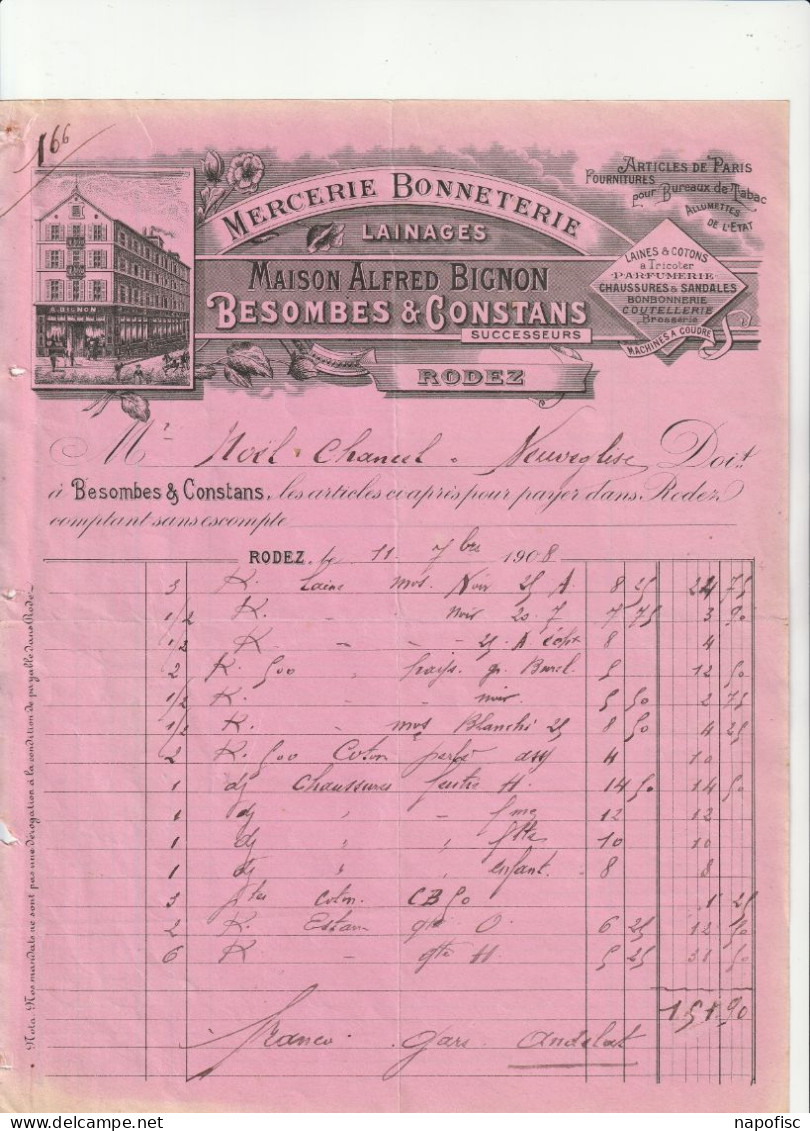 166
MERCERIE BONNETERIE
LAINAGES
MAISON ALFRED BIGNON
BESOMBES & CONSTANS
SUCCESSEURS
RODEZ
A. BIGNON
ARTICLES DE PARIS
FOURNITURES
pour Bureaux de Tabac
ALLUMETTES
DE L'ETAT
LAINES & COTONS
à Tricoter
PARFUMERIE
CHAUSSURES & SANDALES
BONBONNERIE
COUTELLERIE
Brosserie
MACHINES A COUDRE
Mr Noël Chancel Neuveglise Doit
à Besombes & Constans, les articles ci après pour payer dans Rodez
comptant sans escompte
RODEZ, le 11 7bre 1908
3 K. Laine mos Noir 25 A 8 25 24 75
1/2 K. " noir 20 7 7 75 3 90
1/2 K. - - - 25 A 8 4
2 K. 500 " 5 12 50
1/2 K. - noir 5 50 2 75
1/2 K. - mos Blanche 25 8 50 4 25
2 K. 500 Coton perlé ass 4 10
1 dz Chaussures feutre H 14 50 14 50
1 dz " - fme 12 12
1 dz " " ftte 10 10
1 dz " " enfant 8 8
3 coton CB 50 1 25
2 K. Estam qte O 6 25 12 50
6 K - qte H 5 25 31 50
151.90
Franco gare Andelat
Nota. Nos mandats ne sont pas une dérogation à la condition de payable dans Rodez.
delcampe.net
napofisc